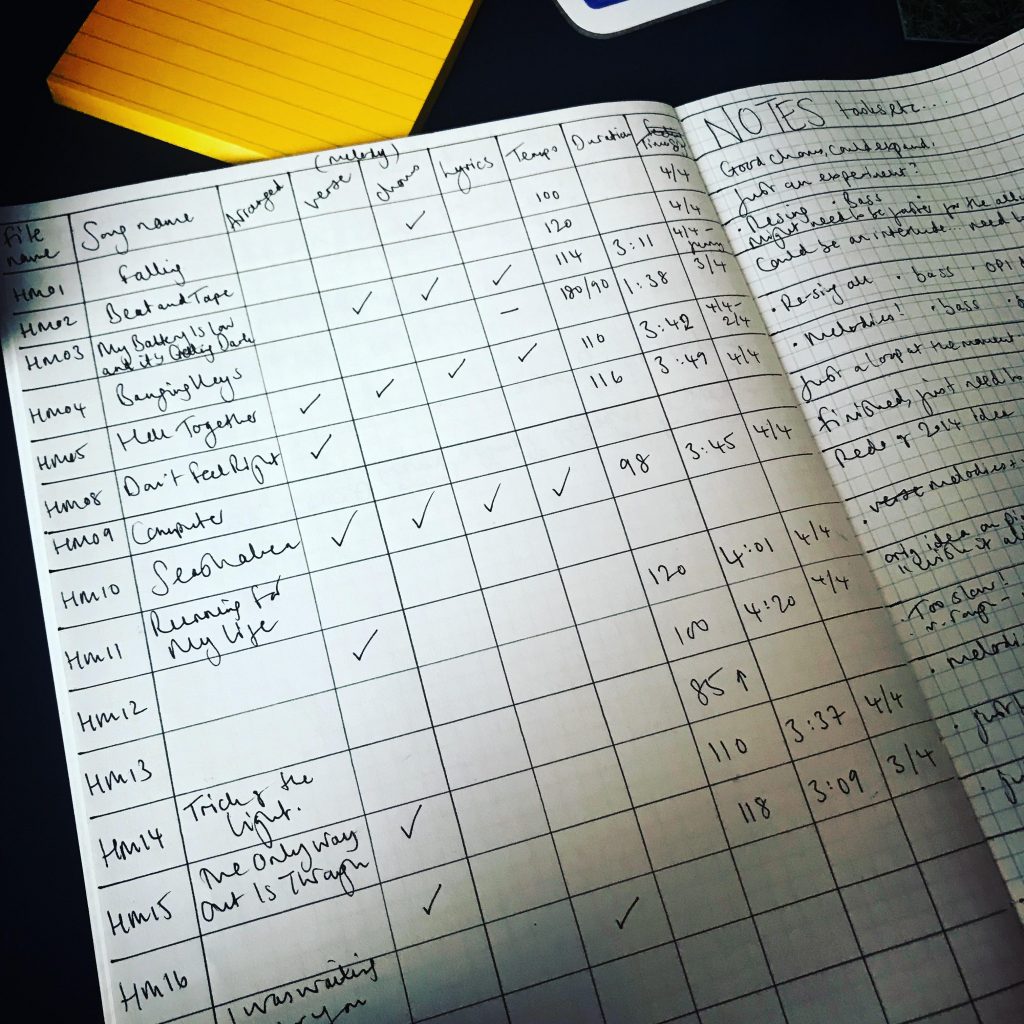 (melody)
File name Song name Arranged verse chorus Lyrics Tempo Duration Timesig
HM01 Falling ✓ 100 4/4
HM02 Beat and Tape 120 4/4
HM03 My Battery Is Low and it's Getting Dark ✓ ✓ ✓ 114 3:11 4/4 -
HM04 Banging Keys – 180/90 1:38 3/4
HM05 Here Together ✓ ✓ ✓ ✓ 110 3:42 4/4 - 2/4
HM08 Don't Feel Right ✓ 116 3:49 4/4
HM09 Computer
HM10 Seashaken ✓ ✓ ✓ ✓ 98 3:45 4/4
HM11 Running For My Life
HM12 ✓ 120 4:01 4/4
HM13 100 4:20 4/4
HM14 Trick of the Light. 85 ↑
HM15 The Only Way Out Is Through ✓ 110 3:37 4/4
HM16 ✓ ✓ 118 3:09 3/4
I was waiting
you
NOTES tasks etc...
Good chorus, could expand.
Just an experiment?
• Resing • Bass
Might need to be faster for the
Could be an interlude... need
• Re-sing all • bass •
• Melodies! • bass •
Just a loop at the moment
Finished, just need to
Redo of 2014 idea
• verse melodies +
only idea on
• Too slow!
• melodi
• just